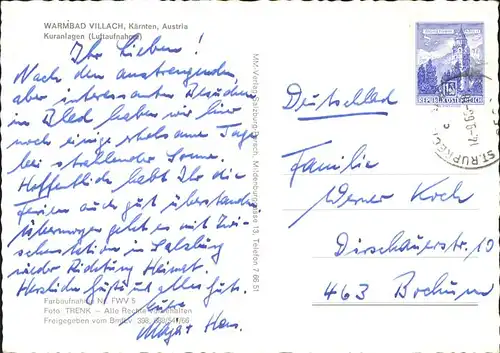 WARMBAD VILLACH, Kärnten, Austria
Kuranlagen (Luftaufnahme)
Ihr Lieben!
Nach den anstrengenden,
aber interessanten
in Bled haben wir hier
noch einige erholsame Tage
bei strahlender Sonne.
Hoffentlich habt Ihr die
Ferien auch gut überstanden
Übermorgen geht es mit Zwi-
schenstation in Salzburg
wieder Richtung Heimat.
Herzlichen Gruß und alles Gute.
Eure
Maja + Hans.
Farbaufnahme Nr. FWV 5
Foto: TRENK — Alle Rechte vorbehalten
Freigegeben vom
MM-Verlag Salzburg-Parsch, 13, Telefon 7 66 51
REPUBLIK ÖSTERREICH
ST. RUPRECHT
Deutschland
Familie
Werner Koch
Dirschauerstr. 10
463 Bochum